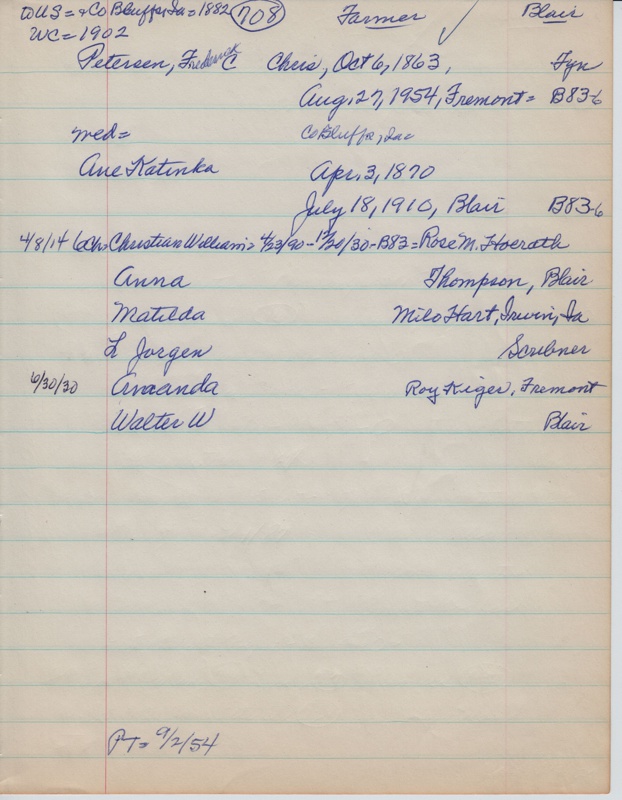 to US = & Co Bluffs, Ia = 1882 708 Farmer ✓ Blair
WC = 1902
Petersen, Frederick C Chris, Oct 6, 1863, Fyn
Aug, 27, 1954, Fremont = B83-6
med = Co Bluffs, Iac
Ane Katinka Apr. 3, 1870
July 18, 1910, Blair B83-6
4/8/14 6 Ch = Christian William = 4/23/90 - 12/20/30 - B83 = Rose M. Hoerath
Anna Thompson, Blair
Matilda Milo Hart, Irwin, Ia
L Jorgen Scribner
6/30/30 Amanda Roy Kiger, Fremont
Walter W Blair
PT = 9/2/54